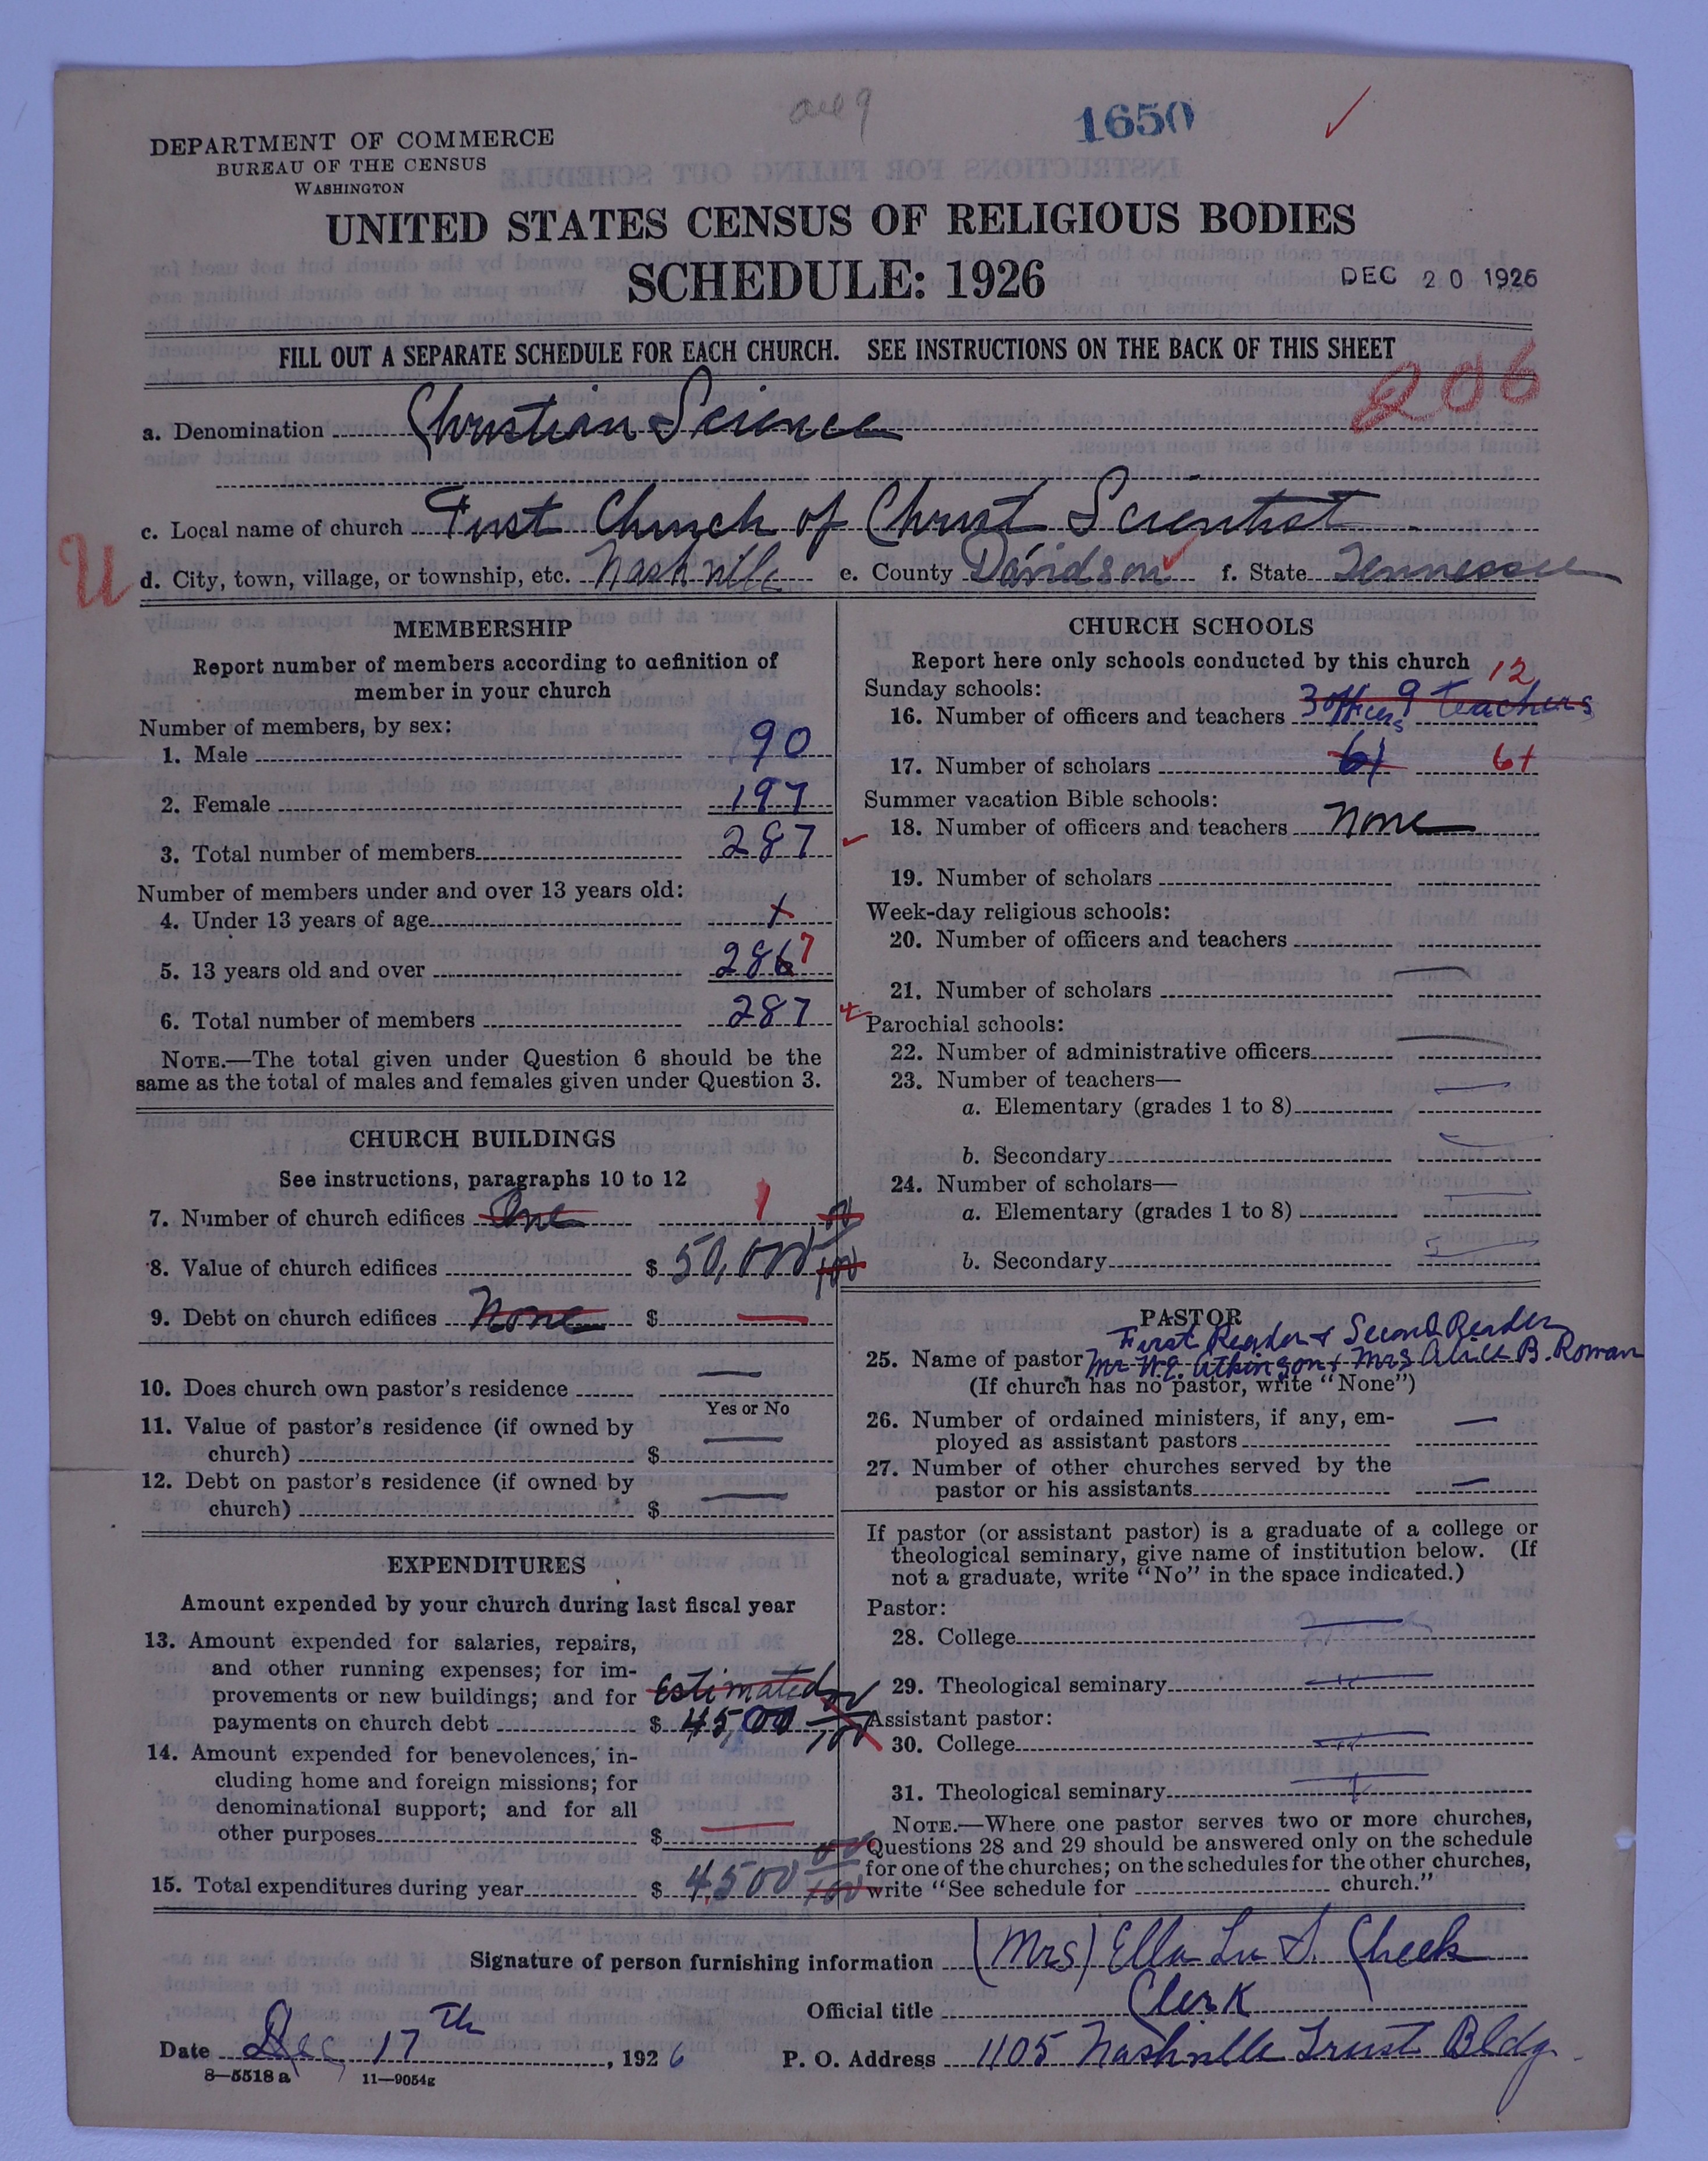 all 9
1650
DEPARTMENT OF COMMERCE
BUREAU OF THE CENSUS
WASHINGTON
UNITED STATES CENSUS OF RELIGIOUS BODIES
SCHEDULE: 1926
DEC 20 1926
FILL OUT A SEPARATE SCHEDULE FOR EACH CHURCH. SEE INSTRUCTIONS ON THE BACK OF THIS SHEET
206
a. Denomination Christian Science
c. Local name of church First Church of Christ Scientist
U
d. City, town, village, or township, etc. Nashville e. County Davidson f. State Tennessee
MEMBERSHIP
Report number of members according to definition of
member in your church
Number of members, by sex:
1. Male 90
2. Female 197
3. Total number of members 287
Number of members under and over 13 years old:
4. Under 13 years of age 1
5. 13 years old and over 286 7
6. Total number of members 287
NOTE.—The total given under Question 6 should be the
same as the total of males and females given under Question 3.
CHURCH BUILDINGS
See instructions, paragraphs 10 to 12
7. Number of church edifices One 1
8. Value of church edifices $ 50,000 00/100
9. Debt on church edifices None $ —
10. Does church own pastor's residence —
Yes or No
11. Value of pastor's residence (if owned by
church) $ —
12. Debt on pastor's residence (if owned by
church) $ —
EXPENDITURES
Amount expended by your church during last fiscal year
13. Amount expended for salaries, repairs,
and other running expenses; for im-
provements or new buildings; and for Estimated
payments on church debt $ 4500 00/100
14. Amount expended for benevolences, in-
cluding home and foreign missions; for
denominational support; and for all
other purposes $ —
15. Total expenditures during year $ 4500 00/100
CHURCH SCHOOLS
Report here only schools conducted by this church
Sunday schools: 12
16. Number of officers and teachers 3 officers 9 teachers
17. Number of scholars 61 61
Summer vacation Bible schools:
18. Number of officers and teachers None
19. Number of scholars
Week-day religious schools:
20. Number of officers and teachers
21. Number of scholars —
Parochial schools:
22. Number of administrative officers —
23. Number of teachers—
a. Elementary (grades 1 to 8) —
b. Secondary —
24. Number of scholars—
a. Elementary (grades 1 to 8) —
b. Secondary —
PASTOR
First Reader & Second Reader
25. Name of pastor Mr. W.E. Atkinson & Mrs Alice B. Roman
(If church has no pastor, write "None")
26. Number of ordained ministers, if any, em-
ployed as assistant pastors —
27. Number of other churches served by the
pastor or his assistants —
If pastor (or assistant pastor) is a graduate of a college or
theological seminary, give name of institution below. (If
not a graduate, write "No" in the space indicated.)
Pastor:
28. College —
29. Theological seminary —
Assistant pastor:
30. College —
31. Theological seminary —
NOTE.—Where one pastor serves two or more churches,
Questions 28 and 29 should be answered only on the schedule
for one of the churches; on the schedules for the other churches,
write "See schedule for church."
Signature of person furnishing information (Mrs) Ella Lu S. Cheek
Official title Clerk
Date Dec 17th, 1926 P. O. Address 1105 Nashville Trust Bldg.
8—5518 a 11—9054g